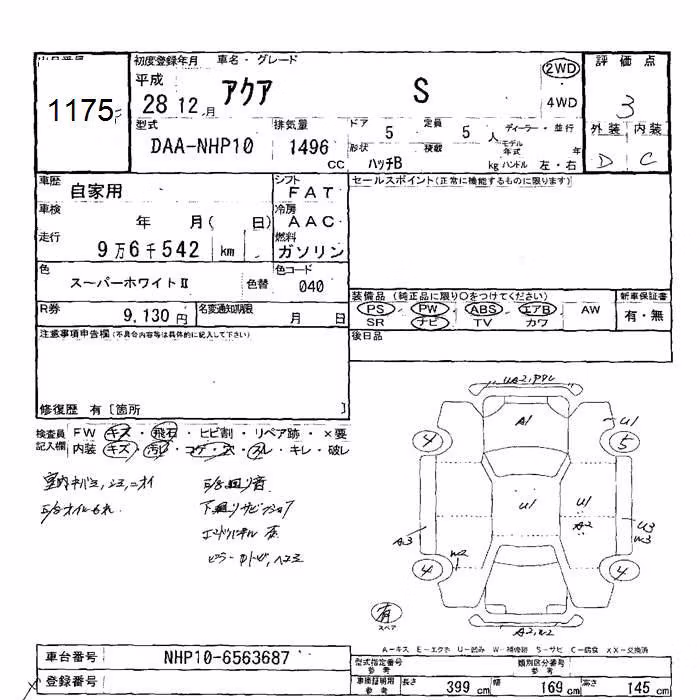 初度登録年月 車名・グレード 評価点
1175
平成 28 12 月 アクア S 2WD 4WD 3
型式 排気量 ドア 定員 ディーラー・並行 外装 内装
DAA-NHP10 1496 cc 5 5 人 モデル年式 年 D C
形状 積載 ハッチB kg ハンドル 左・右
車歴 自家用 シフト FAT セールスポイント(正常に機能するものに限ります)
車検 年 月( 日) 冷房 AAC
走行 9万6千542 km 燃料 ガソリン
色 スーパーホワイトⅡ 色替 色コード 040
装備品 (純正品に限り○をつけてください) 新車保証書
R券 9,130円 名変通知期限 月 日 PS PW ABS エアB AW 有・無
SR ナビ TV カワ
注意事項申告欄(不具合内容等は具体的に記入して下さい) 後日品
修復歴 有〔箇所 〕
検査員記入欄 FW キズ・飛石・ヒビ割・リペア跡・×要
内装 キズ・汚レ・コゲ・穴・スレ・キレ・破レ
A1 U1
4 5
U1 U1 A2
A3 W2 U3 W3
4 4
A2,W2
有
スペア
A-キズ E-エクボ U-凹み W-補修跡 S-サビ C-腐食 XX-交換済
車台番号 NHP10-6563687 型式指定番号 参考 類別区分番号 参考
登録番号 車検証明用 参考 長さ 399 cm 幅 169 cm 高さ 145 cm